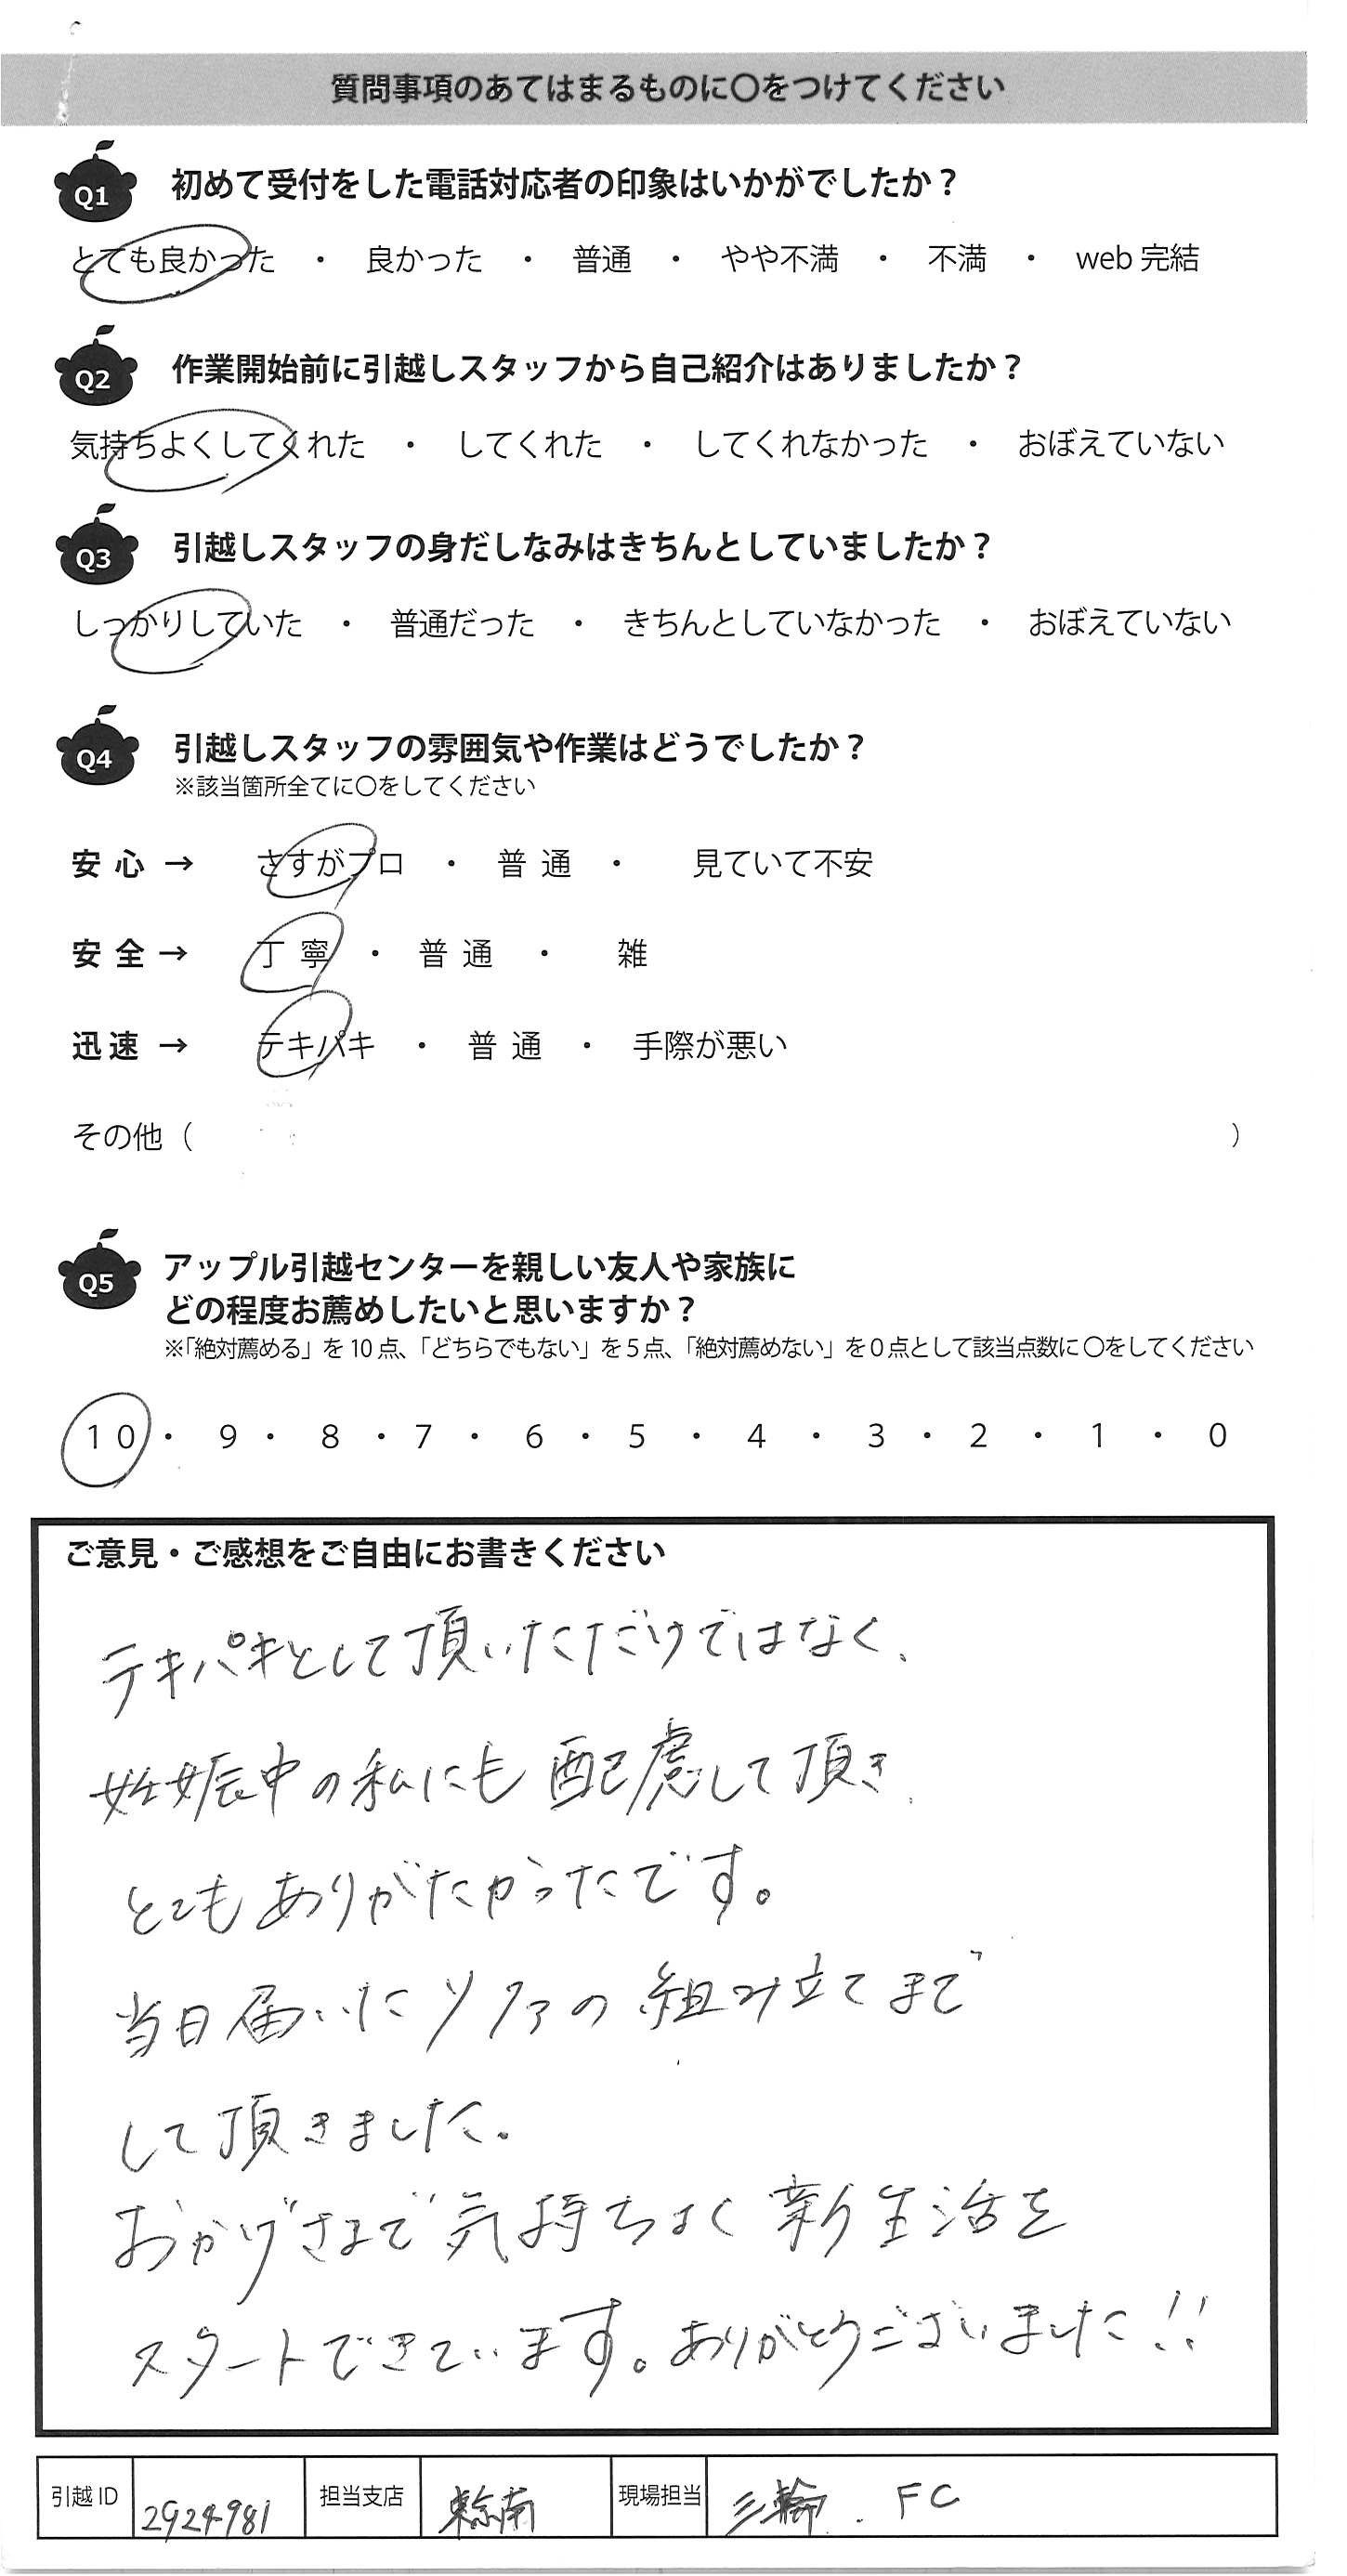 質問事項のあてはまるものに〇をつけてください
Q1 初めて受付をした電話対応者の印象はいかがでしたか？
とても良かった ・ 良かった ・ 普通 ・ やや不満 ・ 不満 ・ web 完結
Q2 作業開始前に引越しスタッフから自己紹介はありましたか？
気持ちよくしてくれた ・ してくれた ・ してくれなかった ・ おぼえていない
Q3 引越しスタッフの身だしなみはきちんとしていましたか？
しっかりしていた ・ 普通だった ・ きちんとしていなかった ・ おぼえていない
Q4 引越しスタッフの雰囲気や作業はどうでしたか？
※該当箇所全てに〇をしてください
安心 → さすがプロ ・ 普通 ・ 見ていて不安
安全 → 丁寧 ・ 普通 ・ 雑
迅速 → テキパキ ・ 普通 ・ 手際が悪い
その他（ ）
Q5 アップル引越センターを親しい友人や家族に
どの程度お薦めしたいと思いますか？
※「絶対薦める」を10点、「どちらでもない」を5点、「絶対薦めない」を0点として該当点数に〇をしてください
10 ・ 9 ・ 8 ・ 7 ・ 6 ・ 5 ・ 4 ・ 3 ・ 2 ・ 1 ・ 0
ご意見・ご感想をご自由にお書きください
テキパキとして頂いただけではなく、
妊娠中の私にも配慮して頂き、
とてもありがたかったです。
当日届いたソファの組み立てまで
して頂きました。
おかげさまで気持ちよく新生活を
スタートできています。ありがとうございました!!
引越ID 2924981 担当支店 東京南 現場担当 三輪. FC